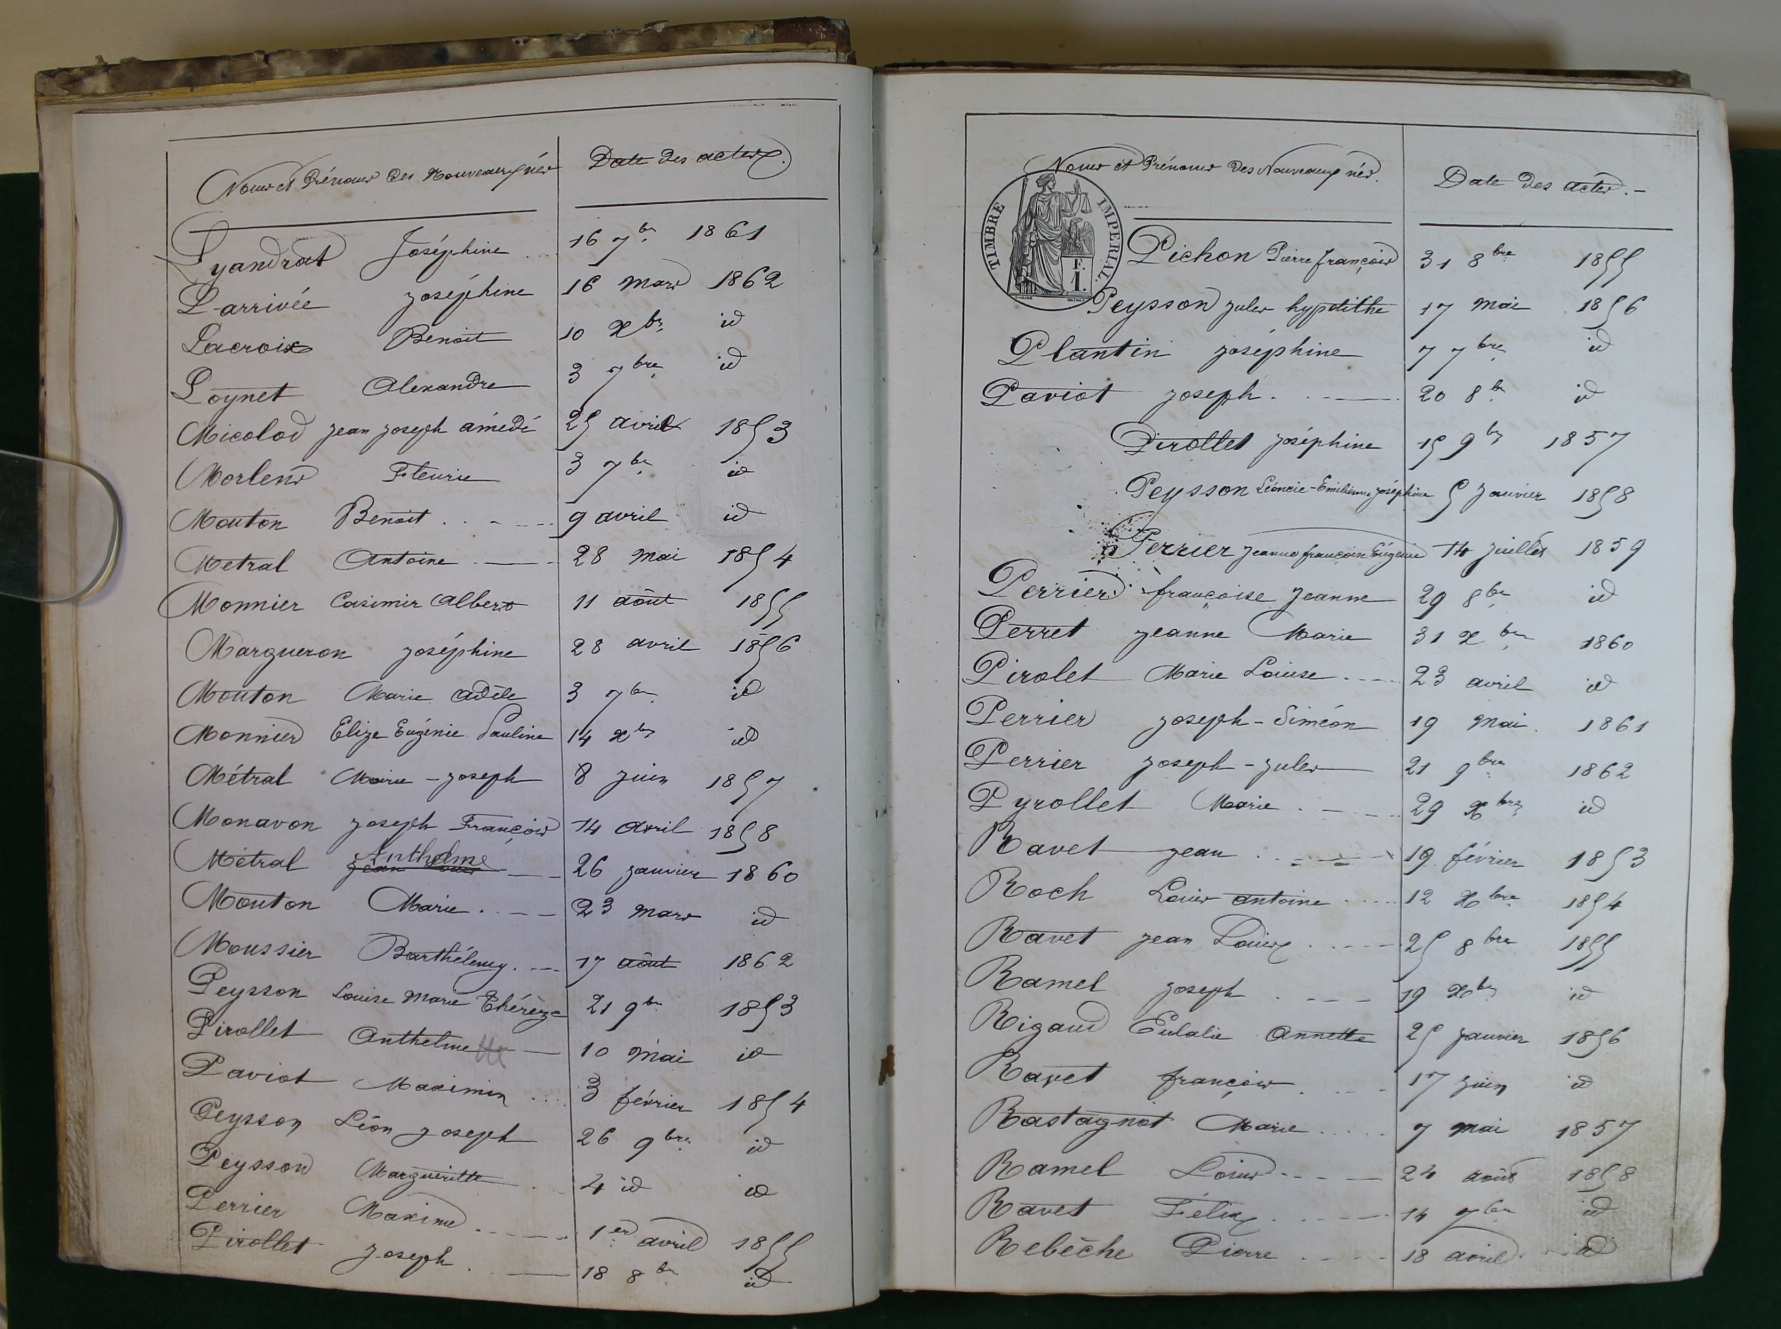 Noms et Prénoms des Nouveaux nés Date des actes.
Lyandrat Joséphine .. 16 7bre 1861
Larrivée joséphine 16 mars 1862
Lacroix Benoit 10 xbre id
Loynet Alexandre 3 7bre id
Micolod jean joseph amédé 25 avril 1853
Morlens Fleurie 3 7bre id
Mouton Benoit 9 avril id
Metral Antoine 28 mai 1854
Monnier Casimir Albert 11 août 1855
Margueron joséphine 28 avril 1856
Mouton Marie adèle 3 7bre id
Monnier Elize Eugénie Pauline 14 xbre id
Métral Marie-joseph 8 juin 1857
Monavon joseph François 14 avril 1858
Métral Anthelme 26 janvier 1860
Mouton Marie 23 mars id
Moussier Barthélemy 17 août 1862
Peysson Louise Marie Thérèze 21 9bre 1853
Pirollet Anthelmette 10 mai id
Paviot Maximin 3 février 1854
Peysson Léon joseph 26 9bre id
Peysson Margueritte 4 id id
Perrier Maxime 1er avril 1855
Pirollet joseph 18 8bre id
Noms et Prénoms des Nouveaux nés. Date des actes.-
TIMBRE IMPERIAL
F.
1.
Pichon Pierre françois 31 8bre 1855
Peysson jules hypolithe 17 mai 1856
Plantin joséphine 7 7bre id
Paviot joseph 20 8bre id
Pirollet joséphine 15 9bre 1857
Peysson Léoncie-Emilienne joséphine 5 janvier 1858
Perrier jeanne françoise Eugénie 14 juillet 1859
Perrier françoise jeanne 29 8bre id
Perret jeanne Marie 31 xbre 1860
Pirolet Marie Louise 23 avril id
Perrier joseph-Siméon 19 mai 1861
Perrier joseph-jules 21 9bre 1862
Pyrollet Marie 29 xbre id
Ravet jean 19 février 1853
Roch Louis antoine 12 xbre 1854
Ravet jean Louis 25 8bre 1855
Ramel joseph 19 xbre id
Rigaud Eulalie Annette 25 janvier 1856
Ravet françois 17 juin id
Rastagnot Marie 7 mai 1857
Ramel Louis 24 août 1858
Ravet Félix 14 7bre id
Rebêche Pierre 18 avril id